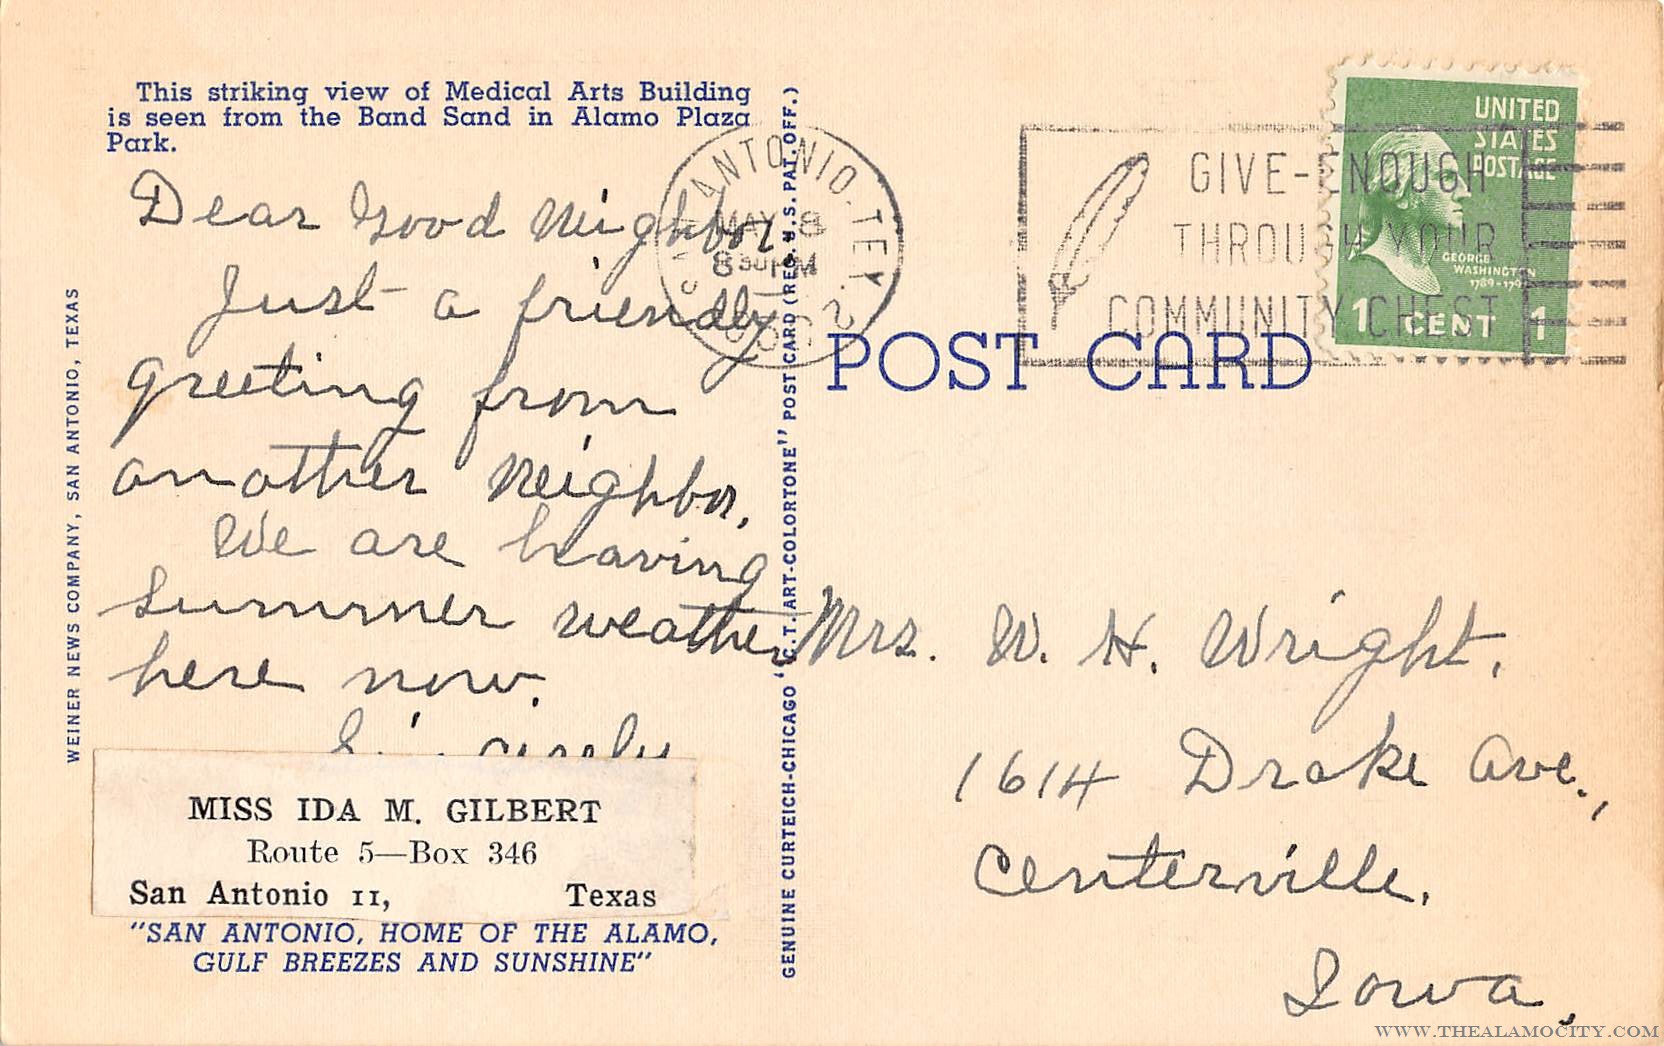 This striking view of Medical Arts Building
is seen from the Band Sand in Alamo Plaza
Park.
Dear Good Neighbor,
Just a friendly
greeting from
another Neighbor,
We are having
summer weather
here now.
Sincerely
MISS IDA M. GILBERT
Route 5—Box 346
San Antonio 11, Texas
"SAN ANTONIO, HOME OF THE ALAMO,
GULF BREEZES AND SUNSHINE"
WEINER NEWS COMPANY, SAN ANTONIO, TEXAS
GENUINE CURTEICH-CHICAGO "C.T. ART-COLORTONE" POST CARD (REG. U.S. PAT. OFF.)
ANTONIO, TEX. 2
MAY 8
8 30 PM
GIVE-ENOUGH
THROUGH YOUR
COMMUNITY CHEST
UNITED
STATES
POSTAGE
GEORGE
WASHINGTON
1 CENT 1
POST CARD
Mrs. W. H. Wright.
1614 Drake Ave.,
Centerville,
Iowa,
WWW.THEALAMOCITY.COM